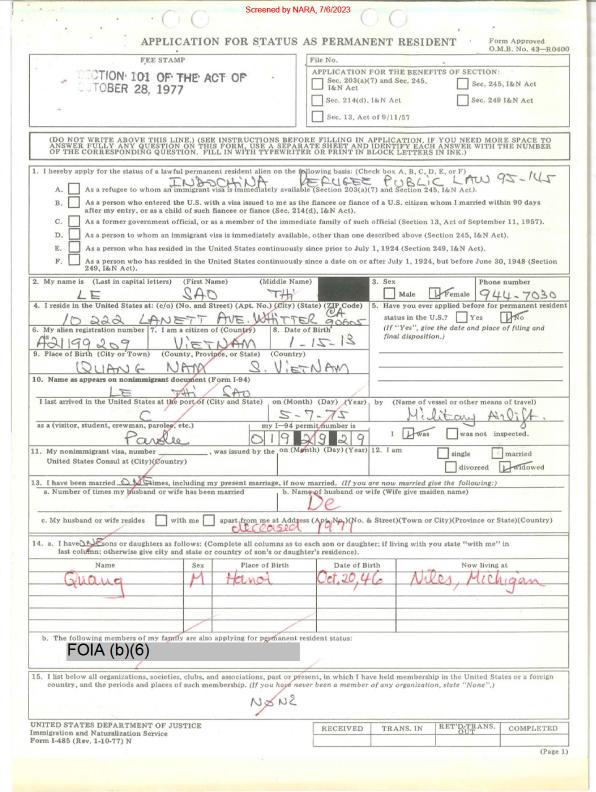 Screened by NARA, 7/6/2023
APPLICATION FOR STATUS AS PERMANENT RESIDENT
Form Approved
O.M.B. No. 43-R0400
FEE STAMP
SECTION 101 OF THE ACT OF
OCTOBER 28, 1977
File No.
APPLICATION FOR THE BENEFITS OF SECTION:
Sec. 203(a)(7) and Sec. 245, I&N Act
Sec. 245, I&N Act
Sec. 214(d), I&N Act
Sec. 249 I&N Act
Sec. 13, Act of 9/11/57
(DO NOT WRITE ABOVE THIS LINE.) (SEE INSTRUCTIONS BEFORE FILLING IN APPLICATION. IF YOU NEED MORE SPACE TO
ANSWER FULLY ANY QUESTION ON THIS FORM, USE A SEPARATE SHEET AND IDENTIFY EACH ANSWER WITH THE NUMBER
OF THE CORRESPONDING QUESTION. FILL IN WITH TYPEWRITER OR PRINT IN BLOCK LETTERS IN INK.)
1. I hereby apply for the status of a lawful permanent resident alien on the following basis: (Check box A, B, C, D, E, or F)
INDOCHINA REFUGEE PUBLIC LAW 95-145
A. As a refugee to whom an immigrant visa is immediately available (Section 203(a)(7) and Section 245, I&N Act).
B. As a person who entered the U.S. with a visa issued to me as the fiancee or fiance of a U.S. citizen whom I married within 90 days
after my entry, or as a child of such fiancee or fiance (Sec. 214(d), I&N Act).
C. As a former government official, or as a member of the immediate family of such official (Section 13, Act of September 11, 1957).
D. As a person to whom an immigrant visa is immediately available, other than one described above (Section 245, I&N Act).
E. As a person who has resided in the United States continuously since prior to July 1, 1924 (Section 249, I&N Act).
F. As a person who has resided in the United States continuously since a date on or after July 1, 1924, but before June 30, 1948 (Section
249, I&N Act).
2. My name is (Last in capital letters) (First Name) (Middle Name)
LE SAO THI
3. Sex
Male Female
Phone number
944-7030
4. I reside in the United States at: (c/o) (No. and Street) (Apt. No.) (City) (State) (ZIP Code)
10222 LANETT AVE. WHITTER CA 90605
5. Have you ever applied for permanent resident
status in the U.S.? Yes No
(If "Yes", give the date and place of filing and
final disposition.)
6. My alien registration number
A21199209
7. I am a citizen of (Country)
VIETNAM
8. Date of Birth
1-15-13
9. Place of Birth (City or Town) (County, Province, or State) (Country)
QUANG NAM S. VIETNAM
10. Name as appears on nonimmigrant document (Form I-94)
LE THI SAO
I last arrived in the United States at the port of (City and State) on (Month) (Day) (Year) by (Name of vessel or other means of travel)
C 5-7-75 Military Airlift.
as a (visitor, student, crewman, parolee, etc.) my I-94 permit number is
Parolee 019 29 29
I was was not inspected.
11. My nonimmigrant visa, number , was issued by the on (Month) (Day) (Year)
United States Consul at (City)(Country)
12. I am
single married
divorced widowed
13. I have been married ONE times, including my present marriage, if now married. (If you are now married give the following:)
a. Number of times my husband or wife has been married
b. Name of husband or wife (Wife give maiden name)
De
c. My husband or wife resides with me apart from me at Address (Apt. No.)(No. & Street)(Town or City)(Province or State)(Country)
deceased 1971
14. a. I have ONE sons or daughters as follows: (Complete all columns as to each son or daughter; if living with you state "with me" in
last column; otherwise give city and state or country of son's or daughter's residence).
Name Sex Place of Birth Date of Birth Now living at
Quang M Hanoi Oct, 20, 46 Niles, Michigan
b. The following members of my family are also applying for permanent resident status:
FOIA (b)(6)
15. I list below all organizations, societies, clubs, and associations, past or present, in which I have held membership in the United States or a foreign
country, and the periods and places of such membership. (If you have never been a member of any organization, state "None".)
NONE
UNITED STATES DEPARTMENT OF JUSTICE
Immigration and Naturalization Service
Form I-485 (Rev. 1-10-77) N
RECEIVED TRANS. IN RET'D-TRANS. OUT COMPLETED
(Page 1)